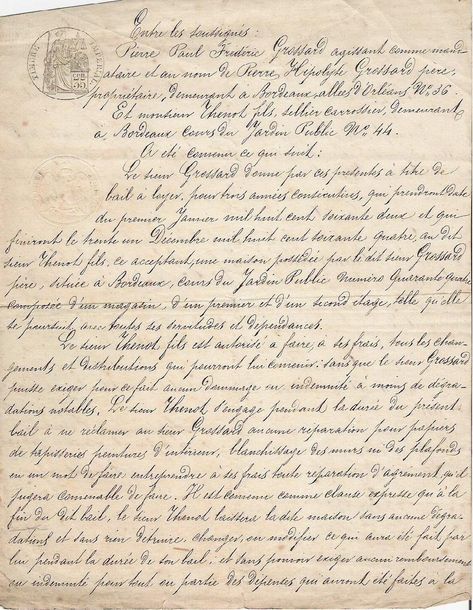 Entre les soussignés :
Pierre Paul Frédéric Grossard agissant comme mand
ataire et au nom de Pierre, Hipolyte Grossard père,
propriétaire, demeurant à Bordeaux allées d'Orléans No 36.
Et monsieur Thenot fils, sellier carrossier, demeurant
à Bordeaux cours du Jardin Public No 44.
A été convenu ce qui suit :
Le sieur Grossard donne par ces présentes à titre de
bail à loyer, pour trois années consécutives, qui prendront date
du premier Janvier mil huit cent soixante deux et qui
finiront le trente un Décembre mil huit cent soixante quatre, au dit
sieur Thenot fils, ce acceptant, une maison possédée par le dit sieur Grossard
père, située à Bordeaux, cours du Jardin Public numéro Quarante Quatre
composée d'un magasin, d'un premier et d'un second étage, telle qu'elle
se poursuit, avec toutes ses servitudes et dépendances.
Le sieur Thenot fils est autorisé à faire, à ses frais, tous les chan-
gements et distributions qui pourront lui convenir, sans que le sieur Grossard
puisse exiger pour ce fait aucun dommage ou indemnité à moins de dégra-
dations notables. Le sieur Thenot s'engage pendant la durée du présent
bail à ne réclamer au sieur Grossard aucune réparation pour papiers
de tapisseries peintures d'intérieur, blanchissage des murs ou des plafonds
en un mot de faire entreprendre à ses frais toute réparation d'agrément, qu'il
jugera convenable de faire. Il est convenu comme clause expresse qu'à la
fin du dit bail, le sieur Thenot laissera la dite maison sans aucune dégra-
dations et sans rien détruire, changer, ou modifier ce qui aura été fait par
lui pendant la durée de son bail, et sans pouvoir exiger aucun remboursement
ou indemnité pour tout ou partie des dépenses qui auront été faites à la